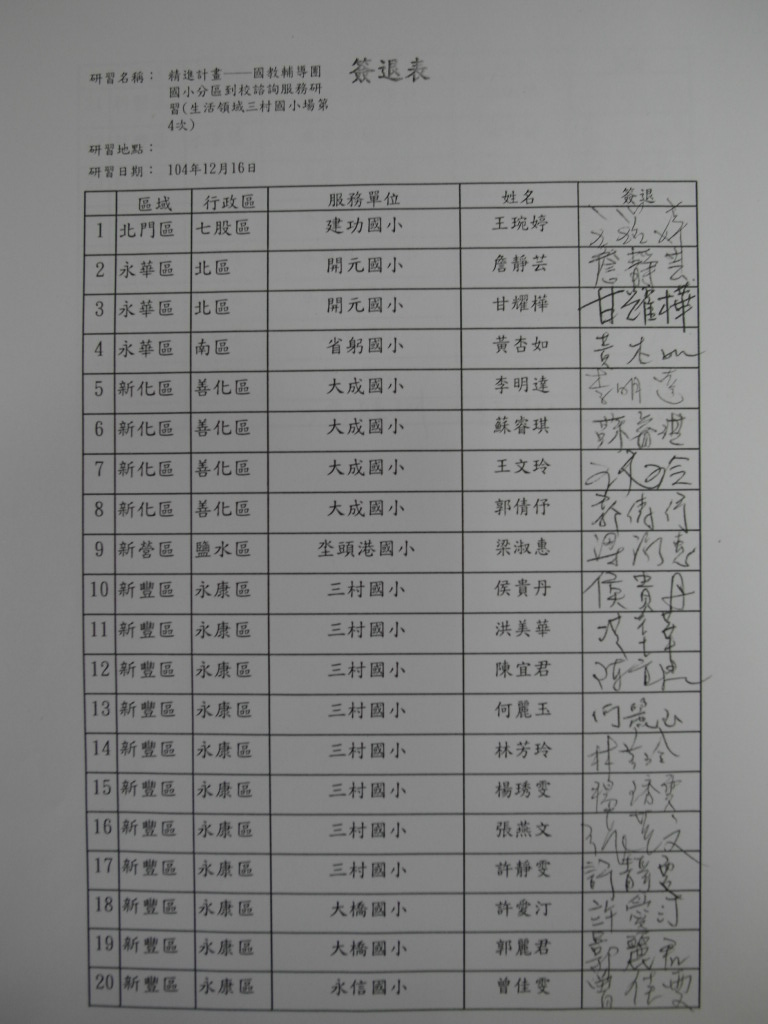 研習名稱： 精進計畫——國教輔導團 簽退表
國小分區到校諮詢服務研
習(生活領域三村國小場第
4次)
研習地點：
研習日期： 104年12月16日
區域 行政區 服務單位 姓名 簽退
1 北門區 七股區 建功國小 王琬婷 王琬婷
2 永華區 北區 開元國小 詹靜芸 詹靜芸
3 永華區 北區 開元國小 甘耀樺 甘耀樺
4 永華區 南區 省躬國小 黃杏如 黃杏如
5 新化區 善化區 大成國小 李明達 李明達
6 新化區 善化區 大成國小 蘇睿琪 蘇睿琪
7 新化區 善化區 大成國小 王文玲 王文玲
8 新化區 善化區 大成國小 郭倩伃 郭倩伃
9 新營區 鹽水區 坔頭港國小 梁淑惠 梁淑惠
10 新豐區 永康區 三村國小 侯貴丹 侯貴丹
11 新豐區 永康區 三村國小 洪美華 洪美華
12 新豐區 永康區 三村國小 陳宜君 陳宜君
13 新豐區 永康區 三村國小 何麗玉 何麗玉
14 新豐區 永康區 三村國小 林芳玲 林芳玲
15 新豐區 永康區 三村國小 楊琇雯 楊琇雯
16 新豐區 永康區 三村國小 張燕文 張燕文
17 新豐區 永康區 三村國小 許靜雯 許靜雯
18 新豐區 永康區 大橋國小 許愛汀 許愛汀
19 新豐區 永康區 大橋國小 郭麗君 郭麗君
20 新豐區 永康區 永信國小 曾佳雯 曾佳雯